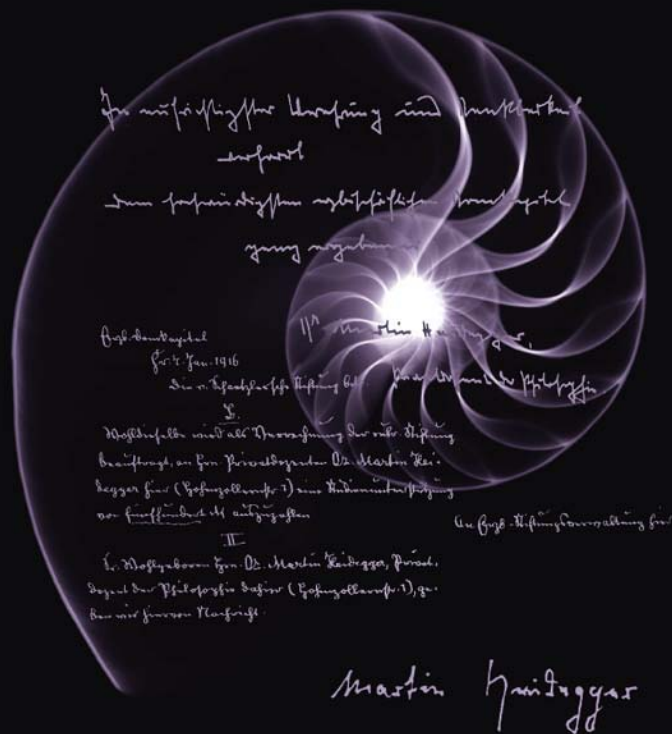 In aufrichtigster Verehrung und Dankbarkeit
verharrt
dem hochwürdigsten erzbischöflichen Domkapitel
ganz ergebener
Dr Martin Heidegger,
Privatdozent der Philosophie
Erzb. Domkapitel
Fr. 7. Jan. 1916
Die v. Schaetzlersche Stiftung betr.
I.
Wohldieselbe wird als Verrechnung der rubr. Stiftung
beauftragt, an Hrn. Privatdozenten Dr. Martin Hei-
degger hier (Hohenzollernstr. 1) eine Studienunterstützung
von fünfhundert M auszuzahlen
An Erzb. Stiftungsverwaltung hier
II
Sr. Wohlgeboren Hrn. Dr. Martin Heidegger, Privat-
dozent der Philosophie dahier (Hohenzollernstr. 1), ge-
ben wir hiervon Nachricht.
Martin Heidegger